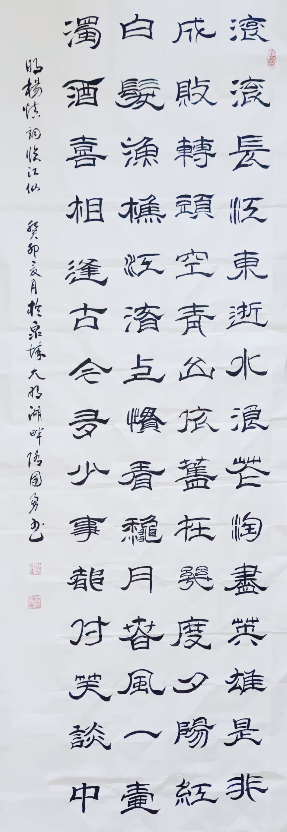 滾滾長江東逝水浪花淘盡英雄是非
成敗轉頭空青山依舊在幾度夕陽紅
白髮漁樵江渚上慣看秋月春風一壺
濁酒喜相逢古今多少事都付笑談中
明楊慎詞臨江仙 癸卯夏月於泉城大明湖畔 國勇書